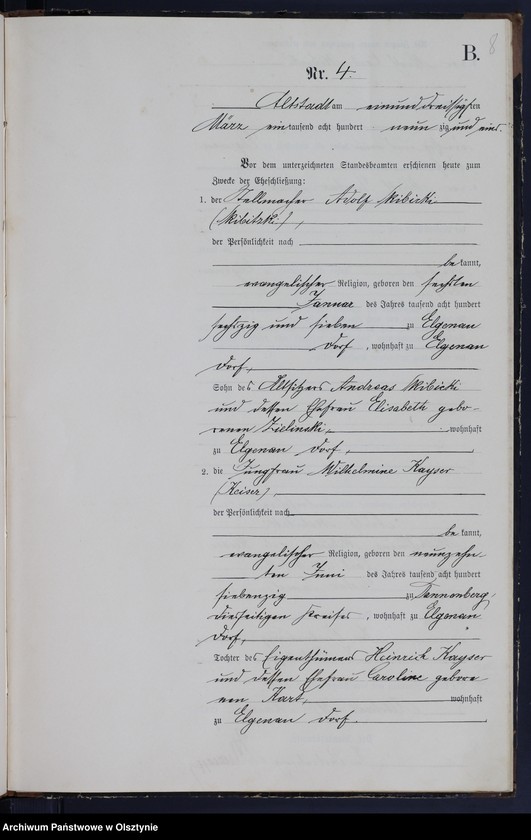 B.
8
Nr. 4.
Altstadt am einunddreißigsten
März ein tausend acht hundert neun zig und eins.
Vor dem unterzeichneten Standesbeamten erschienen heute zum
Zwecke der Eheschließung:
1. der Stellmacher Adolf Skibicki
(Skibitzki),
der Persönlichkeit nach
be kannt,
evangelischer Religion, geboren den sechsten
Januar des Jahres tausend acht hundert
sechszig und sieben zu Elgenau
Dorf, wohnhaft zu Elgenau
Dorf,
Sohn des Altsitzers Andreas Skibicki
und dessen Ehefrau Elisabeth gebo-
renen Zielinski, wohnhaft
zu Elgenau Dorf,
2. die Jungfrau Wilhelmine Kayser
(Keiser),
der Persönlichkeit nach
be kannt,
evangelischer Religion, geboren den neunzehn-
ten Juni des Jahres tausend acht hundert
siebenzig zu Tannenberg,
diesseitigen Kreises, wohnhaft zu Elgenau
Dorf,
Tochter des Eigenthümers Heinrich Kayser
und dessen Ehefrau Caroline gebore-
nen Kart, wohnhaft
zu Elgenau Dorf.
Archiwum Państwowe w Olsztynie